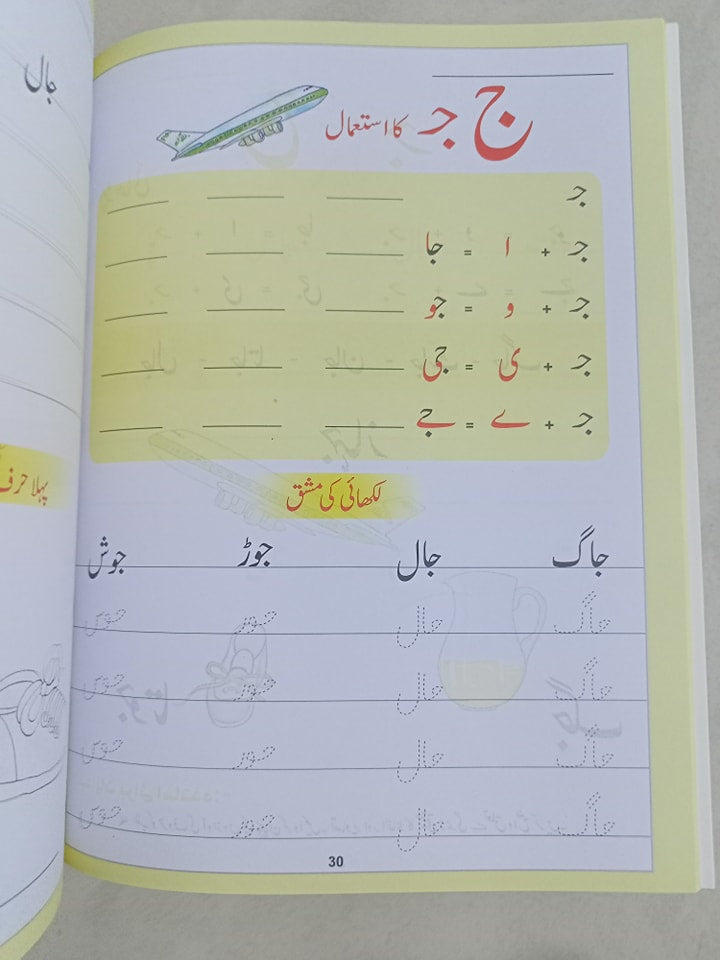 ج جـ کا استعمال
جـ
جـ + ا = جا
جـ + و = جو
جـ + ی = جی
جـ + ے = جے
لکھائی کی مشق
جاگ جال جوڑ جوش
جاگ جال جوڑ جوش
جاگ جال جوڑ جوش
جاگ جال جوڑ جوش
جاگ جال جوڑ جوش
30
جال
پہلا حرف